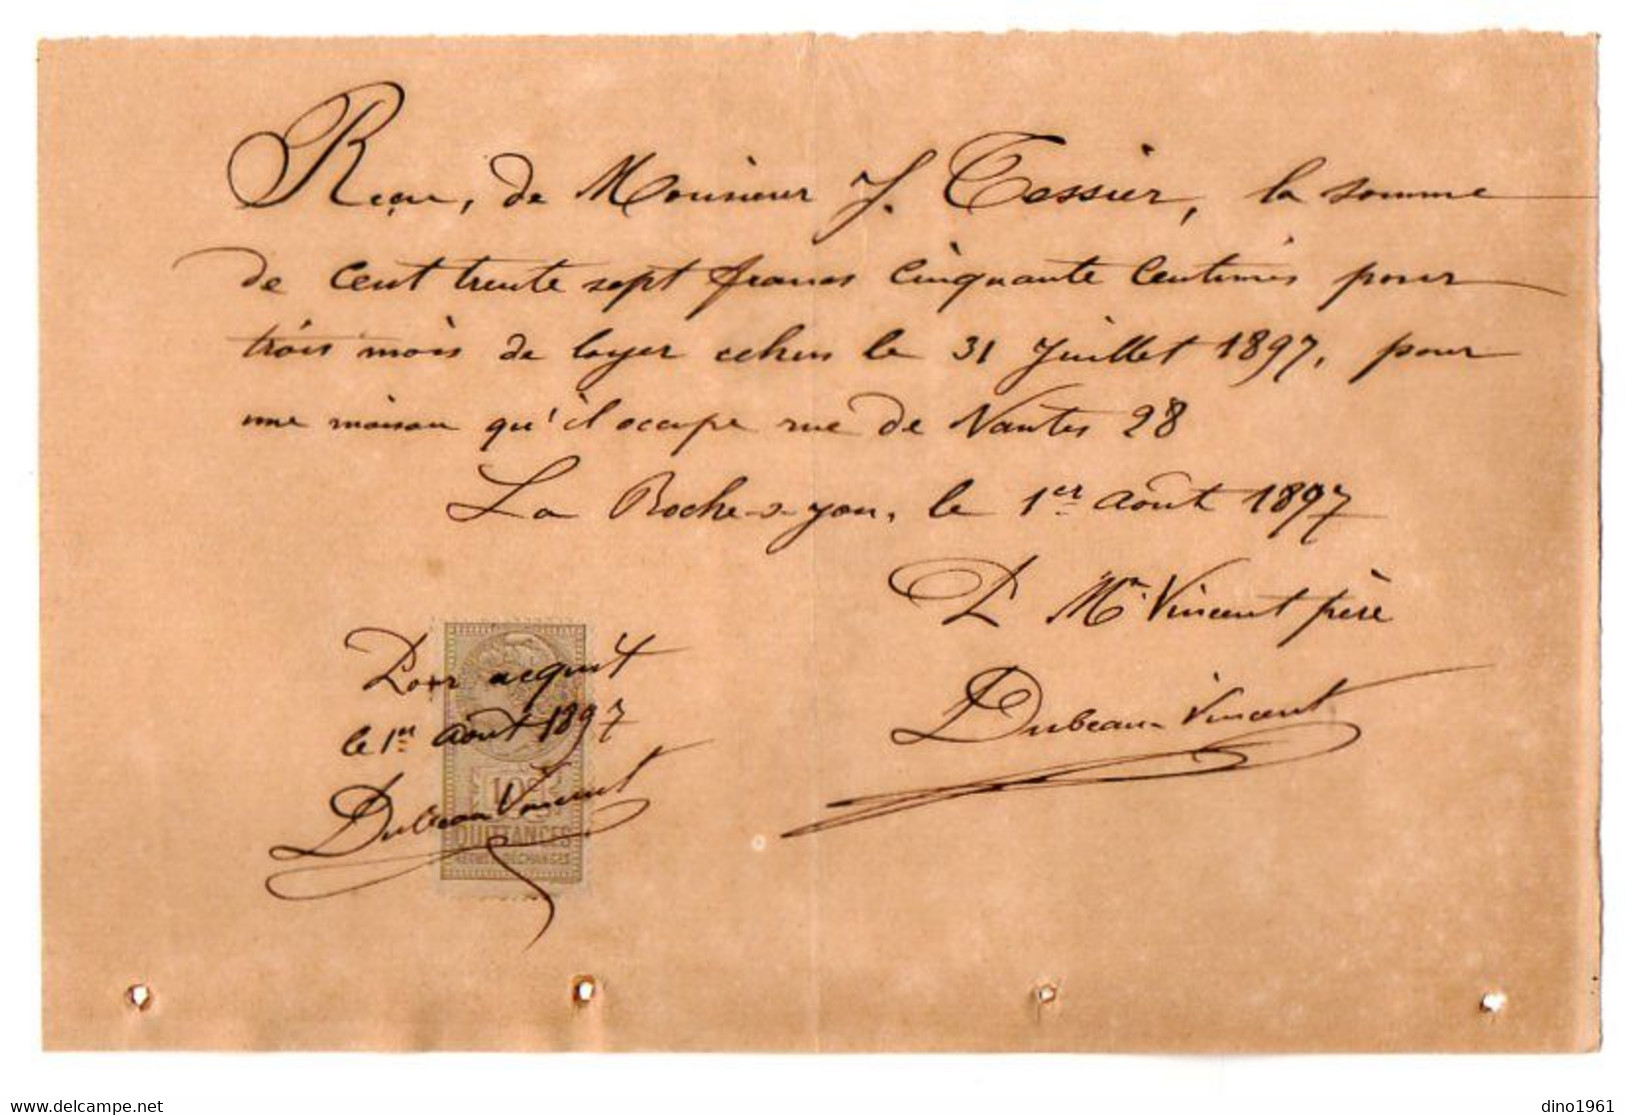 Reçu, de Monsieur J. Tessier, la somme
de cent trente sept francs cinquante centimes pour
trois mois de loyer echus le 31 Juillet 1897, pour
une maison qu'il occupe rue de Nantes 28
La Roche-s-yon, le 1er Août 1897
P. Mr Vincent père
Dubeaux Vincent
Pour acquit
le 1er Août 1897
Dubeaux Vincent
10c
QUITTANCES
REÇUS & DÉCHARGES
www.delcampe.net
dino1961